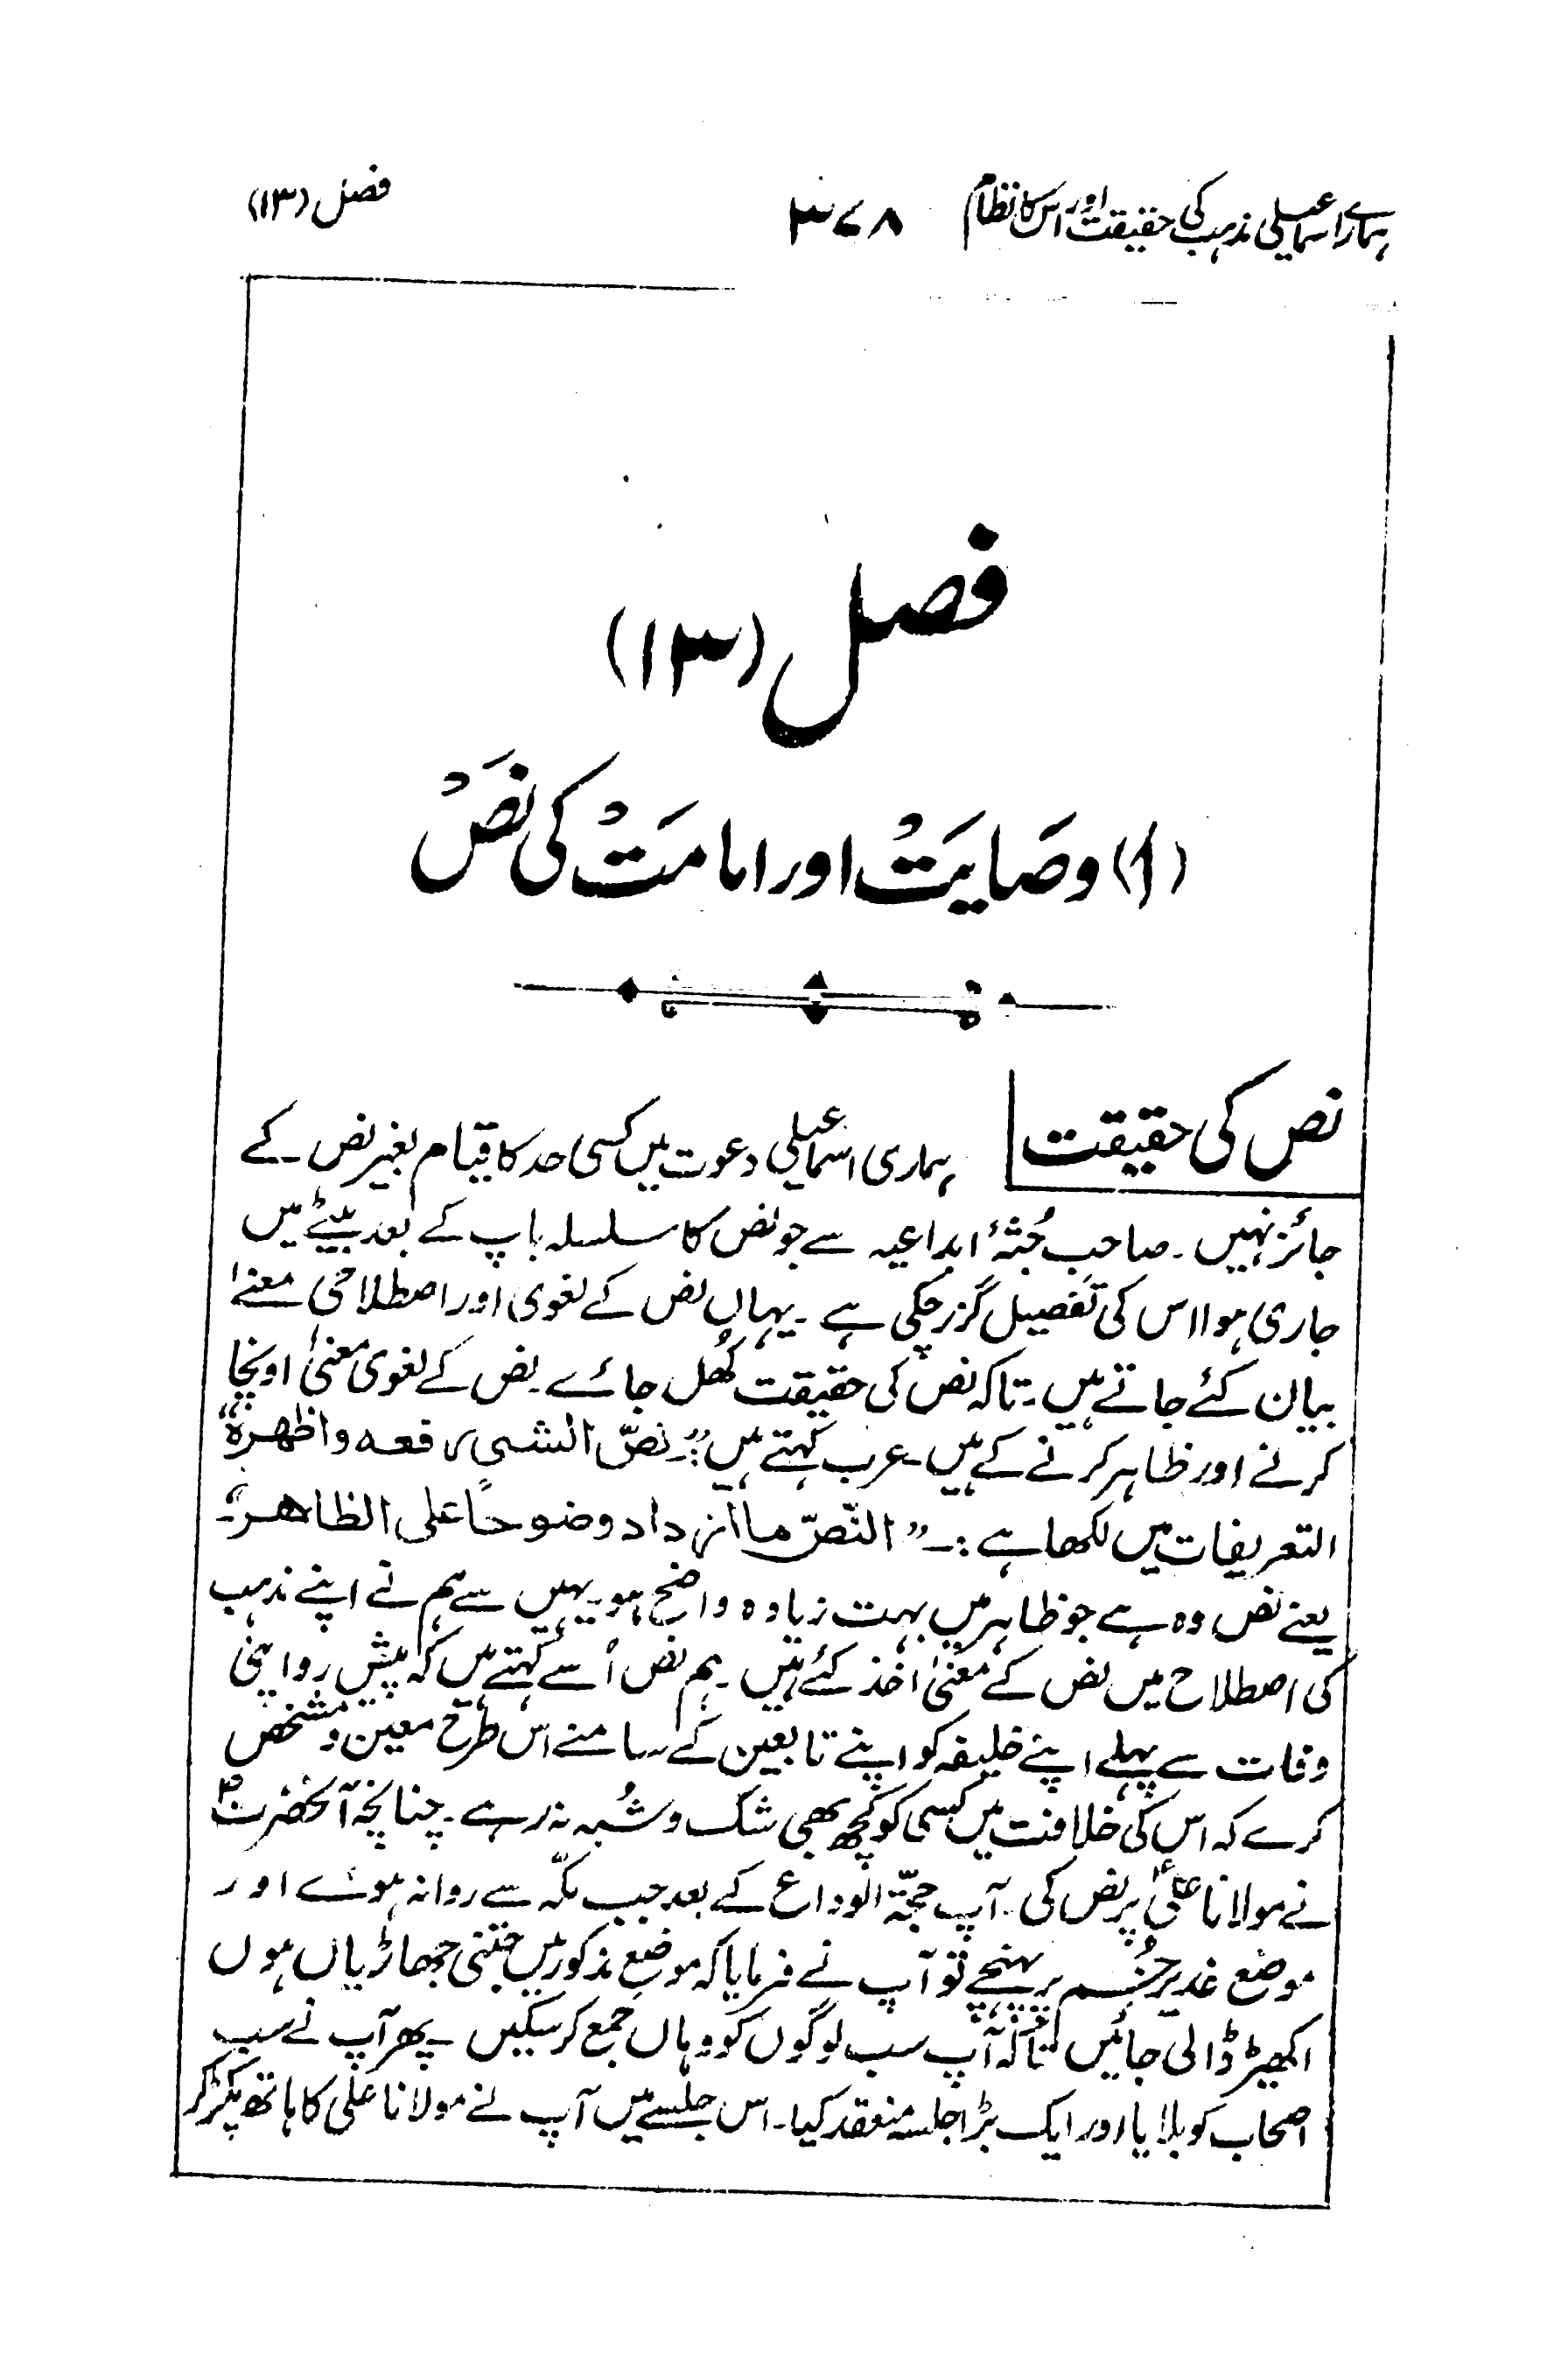 ہمارے اسماعیلی مذہب کی حقیقت اور اس کا نظام ۳۷۸ فصل (۱۳)
فصل (۱۳)
(۱) وصایت اور امامت کی نص
نص کی حقیقت
ہماری اسماعیلی دعوت میں کسی حد کا قیام بغیر نص کے
جائز نہیں ۔ صاحبِ جُثّۂ ابداعیہ سے جو نص کا سلسلہ باپ کے بعد بیٹے میں
جاری ہوا اس کی تفصیل گزر چکی ہے ۔ یہاں نص کے لغوی اور اصطلاحی معنے
بیان کئے جاتے ہیں ۔ تاکہ نص کی حقیقت کُھل جائے ۔ نص کے لغوی معنیٰ اونچا
کرنے اور ظاہر کرنے کے ہیں ۔ عرب کہتے ہیں :۔ ”نصّ الشیء رفعہ واظھرہ“
التعریفات میں لکھا ہے :۔ ”النّصّ ما ازداد وضوحًا علی الظاھر“۔
یعنے نص وہ ہے جو ظاہر میں بہت زیادہ واضح ہو یہیں سے ہم نے اپنے مذہب
کی اصطلاح میں نص کے معنیٰ اخذ کئے ہیں ۔ ہم نص اُسے کہتے ہیں کہ پیش رو اپنی
وفات سے پہلے اپنے خلیفہ کو اپنے تابعین کے سامنے اس طرح معین و مشخص
کرے کہ اس کی خلافت میں کسی کو کچھ بھی شک و شُبہ نہ رہے ۔ چنانچہ آنحضرتؐ
نے مولانا علیؑ پر نص کی ۔ آپ حجّۃ الوداع کے بعد جب مکّہ سے روانہ ہوئے اور
موضع غدیر خُم پر پہنچے تو آپ نے فرمایا کہ موضع مذکور میں جتنی جھاڑیاں ہوں
اکھیڑ ڈالی جائیں تاکہ آپ سب لوگوں کو وہاں جمع کر سکیں ۔ پھر آپ نے سب
اصحاب کو بلایا اور ایک بڑا جلسہ منعقد کیا ۔ اس جلسے میں آپ نے مولانا علی کا ہاتھ پکڑ کر